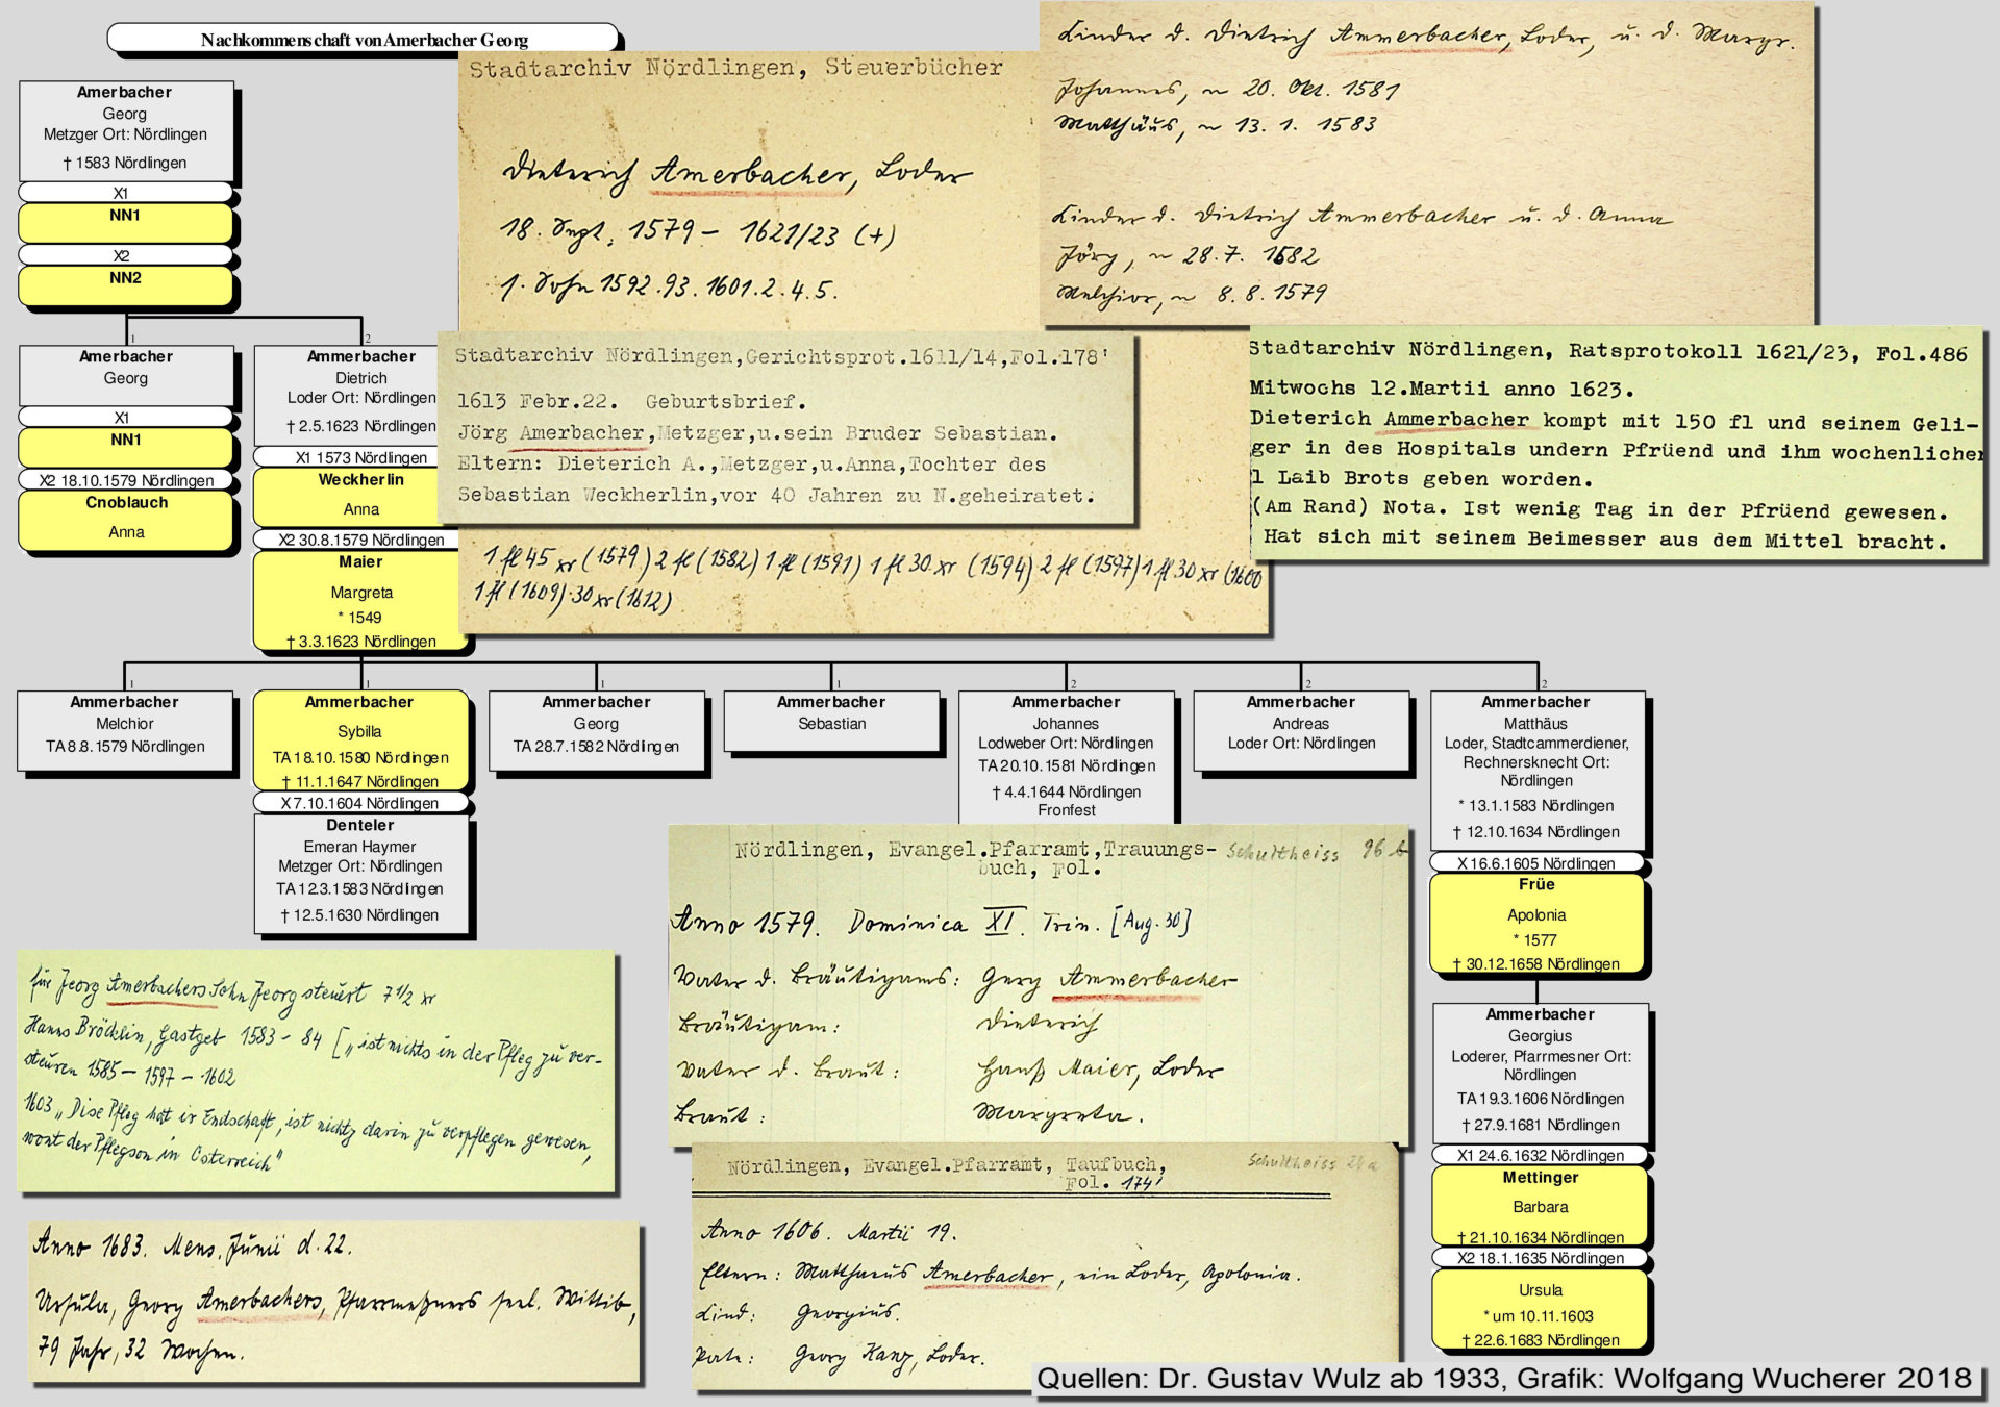 Nachkommenschaft von Amerbacher Georg
Amerbacher
Georg
Metzger Ort: Nördlingen
† 1583 Nördlingen
X1
NN1
X2
NN2
1
Amerbacher
Georg
X1
NN1
X2 18.10.1579 Nördlingen
Cnoblauch
Anna
2
Ammerbacher
Dietrich
Loder Ort: Nördlingen
† 2.5.1623 Nördlingen
X1 1573 Nördlingen
Weckherlin
Anna
X2 30.8.1579 Nördlingen
Maier
Margreta
* 1549
† 3.3.1623 Nördlingen
Stadtarchiv Nördlingen, Steuerbücher
Dieterich Amerbacher, Loder
18. Sept. 1579 – 1621/23 (+)
1. Sohn 1592.93.1601.2.4.5.
1 fl 45 xr (1579) 2 fl (1582) 1 fl (1591) 1 fl 30 xr (1594) 2 fl (1597) 1 fl 30 xr (1600
1 fl (1609) 30 xr (1612)
Kinder d. Dietrich Ammerbacher, Loder, u. d. Margr.
Johannes, ~ 20. Okt. 1581
Matthäus, ~ 13. 1. 1583
Kinder d. Dietrich Ammerbacher u. d. Anna
Jörg, ~ 28.7. 1582
Melchior, ~ 8. 8. 1579
Stadtarchiv Nördlingen,Gerichtsprot.1611/14,Fol.178'
1613 Febr.22. Geburtsbrief.
Jörg Amerbacher,Metzger,u.sein Bruder Sebastian.
Eltern: Dieterich A.,Metzger,u.Anna,Tochter des
Sebastian Weckherlin,vor 40 Jahren zu N.geheiratet.
Stadtarchiv Nördlingen, Ratsprotokoll 1621/23, Fol.486
Mitwochs 12.Martii anno 1623.
Dieterich Ammerbacher kompt mit 150 fl und seinem Geli-
ger in des Hospitals undern Pfrüend und ihm wochenlicher
1 Laib Brots geben worden.
(Am Rand) Nota. Ist wenig Tag in der Pfrüend gewesen.
Hat sich mit seinem Beimesser aus dem Mittel bracht.
1
Ammerbacher
Melchior
TA 8.8.1579 Nördlingen
1
Ammerbacher
Sybilla
TA 18.10.1580 Nördlingen
† 11.1.1647 Nördlingen
X 7.10.1604 Nördlingen
Denteler
Emeran Haymer
Metzger Ort: Nördlingen
TA 12.3.1583 Nördlingen
† 12.5.1630 Nördlingen
1
Ammerbacher
Georg
TA 28.7.1582 Nördlingen
1
Ammerbacher
Sebastian
2
Ammerbacher
Johannes
Lodweber Ort: Nördlingen
TA 20.10.1581 Nördlingen
† 4.4.1644 Nördlingen
Fronfest
2
Ammerbacher
Andreas
Loder Ort: Nördlingen
2
Ammerbacher
Matthäus
Loder, Stadtcammerdiener,
Rechnersknecht Ort:
Nördlingen
* 13.1.1583 Nördlingen
† 12.10.1634 Nördlingen
X 16.6.1605 Nördlingen
Früe
Apolonia
* 1577
† 30.12.1658 Nördlingen
Ammerbacher
Georgius
Loderer, Pfarrmesner Ort:
Nördlingen
TA 19.3.1606 Nördlingen
† 27.9.1681 Nördlingen
X1 24.6.1632 Nördlingen
Mettinger
Barbara
† 21.10.1634 Nördlingen
X2 18.1.1635 Nördlingen
Ursula
* um 10.11.1603
† 22.6.1683 Nördlingen
Nördlingen, Evangel.Pfarramt,Trauungs- Schultheiss 96 b
buch, Fol.
Anno 1579. Dominica XI. Trin. [Aug. 30]
Vater d. Bräutigams: Gerg Ammerbacher
Bräutigam: Dieterich
Vater d. Braut: Hanß Maier, Loder
Braut: Margreta.
für Jeorg Amerbachers Sohn Jeorg steurt 7 1/2 xr
Hanns Bröcklin, Gastgeb 1583 – 84 [„ist nichts in der Pfleg zu ver-
steuren 1585 – 1597 – 1602
1603 „Dise Pfleg hatt ir Endschafft, ist nichtz darin zu verpflegen gewesen,
wont der Pflegson in Österreich"
Nördlingen, Evangel.Pfarramt, Taufbuch, Schultheiss
Fol. 174'
Anno 1606. Martii 19.
Eltern: Matthaeus Amerbacher, ein Loder, Apolonia.
Kind: Georgius.
Pate: Georg Kanz, Loder.
Anno 1683. Mens. Junii d. 22.
Ursula, Georg Amerbachers, Pfarrmeßners seel. Wittib,
79 Jahr, 32 Wochen.
Quellen: Dr. Gustav Wulz ab 1933, Grafik: Wolfgang Wucherer 2018